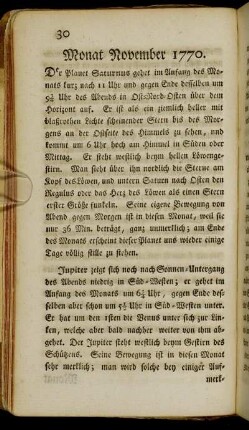 30
Monat November 1770.
Der Planet Saturnus gehet im Anfang des Mo-
nats kurz nach 11 Uhr und gegen Ende desselben um
9½ Uhr des Abends in Ost-Nord-Osten über dem
Horizont auf. Er ist als ein ziemlich heller mit
blaßrothen Lichte scheinender Stern bis des Mor-
gens an der Ostseite des Himmels zu sehen, und
kommt um 6 Uhr hoch am Himmel in Süden oder
Mittag. Er steht westlich beym hellen Löwenge-
stirn. Man siehet über ihn nordlich die Sterne am
Kopf des Löwen, und untern Saturn nach Osten den
Regulus oder das Herz des Löwen als einen Stern
erster Größe funkeln. Seine eigene Bewegung von
Abend gegen Morgen ist in diesen Monat, weil sie
nur 36 Min. beträgt, ganz unmerklich; am Ende
des Monats erscheint dieser Planet uns wieder einige
Tage völlig stille zu stehen.
Jupiter zeigt sich noch nach Sonnen-Untergang
des Abends niedrig in Süd-Westen; er gehet im
Anfang des Monats um 6¾ Uhr, gegen Ende des-
selben aber schon um Uhr in Süd-Westen unter.
Er hat um den ersten die Venus unter sich zur Lin-
ken, welche aber bald nachher weiter von ihm ab-
gehet. Der Jupiter steht westlich beym Gestirn des
Schützens. Seine Bewegung ist in diesen Monat
sehr merklich; man wird solche bey einiger Auf-
merk-